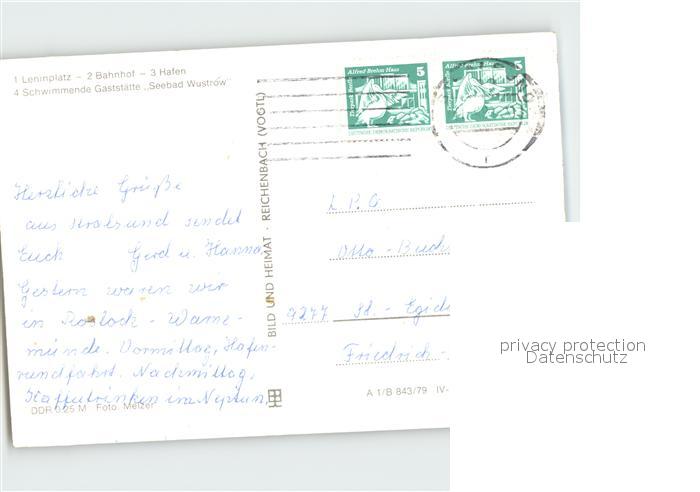 1 Leninplatz – 2 Bahnhof – 3 Hafen
4 Schwimmende Gaststätte „Seebad Wustrow"
Alfred Brehm Haus
5
Tierpark Berlin
DEUTSCHE DEMOKRATISCHE REPUBLIK
Alfred Brehm Haus
5
Tierpark Berlin
DEUTSCHE DEMOKRATISCHE REPUBLIK
BILD UND HEIMAT · REICHENBACH (VOGTL)
Herzliche Grüße
aus Stralsund sendet
Euch Gerd u. Hanna
Gestern waren wir
in Rostock - Warne-
münde. Vormittag, Hafen-
rundfahrt. Nachmittag,
Kaffeetrinken im Neptun,
L. P. G.
Otto - Buch
9277 St. - Egid
Friedrich -
privacy protection
Datenschutz
A 1/B 843/79 IV-
DDR 0,25 M Foto: Melzer